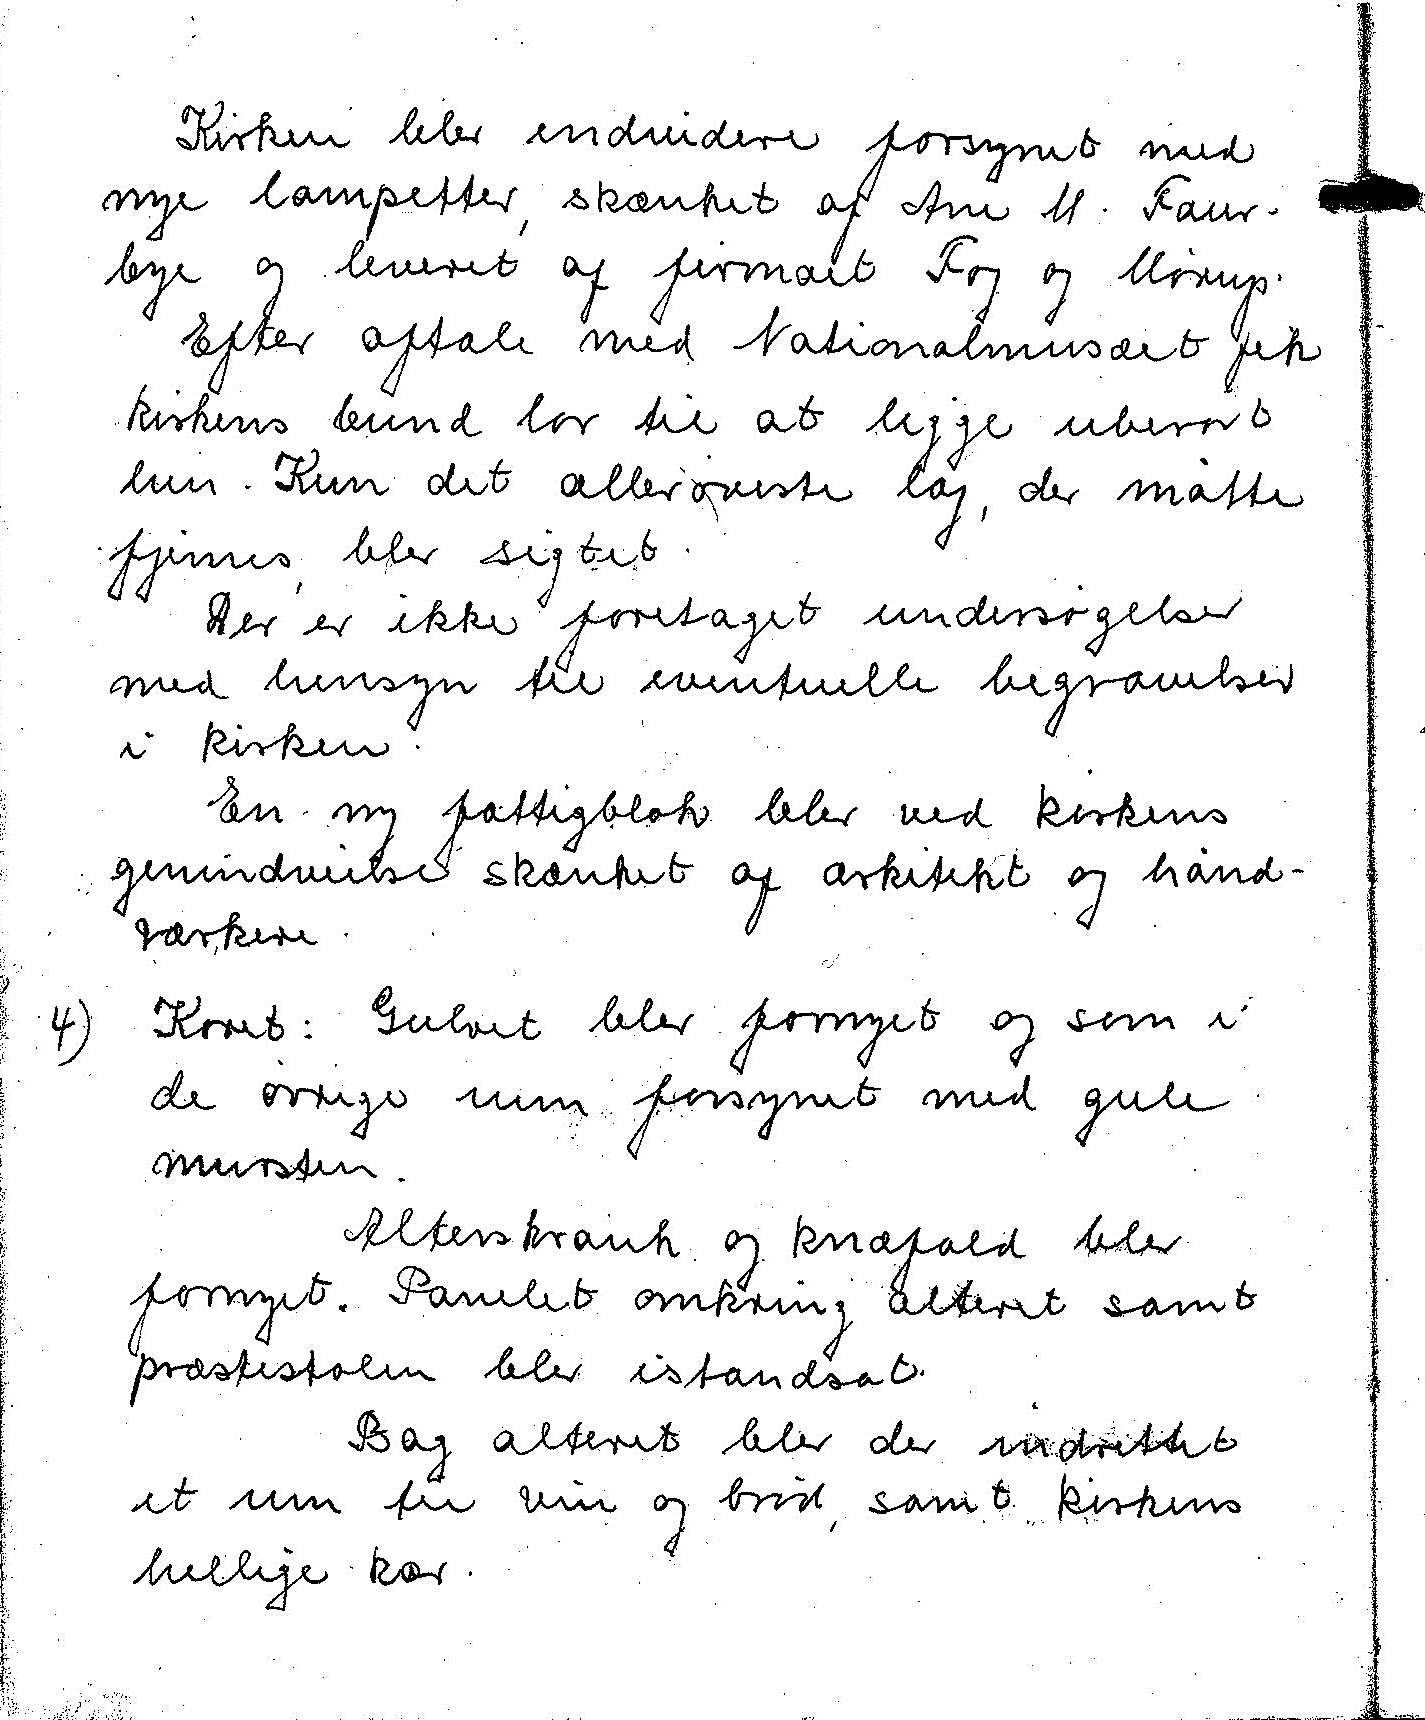 Kirken blev endvidere forsynet med
nye lampetter, skænket af Ane M. Faur-
bye og leveret af firmaet Fog og Mørup.
Efter aftale med Nationalmusæet fik
kirkens bund lov til at ligge uberørt
hen. Kun det allerøverste lag, der måtte
fjernes, blev sigtet.
Der er ikke foretaget undersøgelser
med hensyn til eventuelle begravelser
i kirken.
En ny fattigblok blev ved kirkens
genindvielse skænket af arkitekt og hånd-
værkere.
4) Koret: Gulvet blev fornyet og som i
de øvrige rum forsynet med gule
mursten.
Alterskrank og knæfald blev
fornyet. Panelet omkring alteret samt
præstestolen blev istandsat.
Bag alteret blev der indrettet
et rum til vin og brød, samt kirkens
hellige kar.